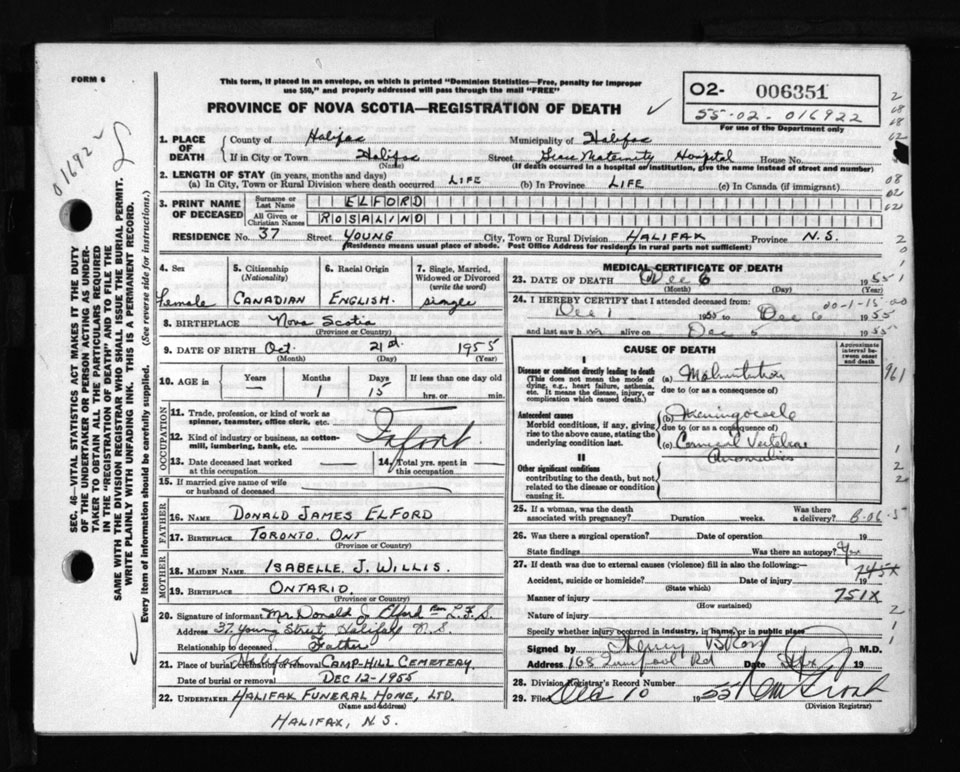 FORM 6
This form, if placed in an envelope, on which is printed "Dominion Statistics—Free, penalty for improper
use $50," and properly addressed will pass through the mail "FREE"
PROVINCE OF NOVA SCOTIA—REGISTRATION OF DEATH
O2- 006351
55-02-016922
For use of the Department only
01692
SEC. 46—VITAL STATISTICS ACT MAKES IT THE DUTY
OF THE UNDERTAKER OR PERSON ACTING AS UNDER-
TAKER TO OBTAIN ALL THE PARTICULARS REQUIRED
IN THE "REGISTRATION OF DEATH" AND TO FILE THE
SAME WITH THE DIVISION REGISTRAR WHO SHALL ISSUE THE BURIAL PERMIT.
WRITE PLAINLY WITH UNFADING INK. THIS IS A PERMANENT RECORD.
Every item of information should be carefully supplied. (See reverse side for instructions.)
1. PLACE OF DEATH
County of Halifax Municipality of Halifax
If in City or Town Halifax Street Grace Maternity Hospital House No.
(Name) (If death occurred in a hospital or institution, give the name instead of street and number)
2. LENGTH OF STAY (in years, months and days)
(a) In City, Town or Rural Division where death occurred LIFE (b) In Province LIFE (c) In Canada (if immigrant)
3. PRINT NAME OF DECEASED
Surname or Last Name ELFORD
All Given or Christian Names ROSALIND
RESIDENCE No. 37 Street YOUNG City, Town or Rural Division HALIFAX Province N.S.
(Residence means usual place of abode. Post Office Address for residents in rural parts not sufficient)
4. Sex
female
5. Citizenship
(Nationality)
CANADIAN
6. Racial Origin
ENGLISH.
7. Single, Married, Widowed or Divorced
(write the word)
single
8. BIRTHPLACE Nova Scotia
(Province or Country)
9. DATE OF BIRTH Oct. 21st. 1955
(Month) (Day) (Year)
10. AGE Years — Months 1 Days 15 If less than one day old
hrs. or min.
OCCUPATION
11. Trade, profession, or kind of work as
spinner, teamster, office clerk, etc.
12. Kind of industry or business, as cotton-
mill, lumbering, bank, etc.
Infant
13. Date deceased last worked
at this occupation
14. Total yrs. spent in
this occupation
15. If married give name of wife
or husband of deceased
FATHER
16. NAME DONALD JAMES ELFORD
17. BIRTHPLACE TORONTO. ONT
(Province or Country)
MOTHER
18. MAIDEN NAME ISABELLE J. WILLIS.
19. BIRTHPLACE ONTARIO.
(Province or Country)
20. Signature of informant Mr Donald J Elford
Address 37 Young Street, Halifax N.S.
Relationship to deceased Father
21. Place of burial, cremation or removal CAMP-HILL CEMETERY.
Date of burial or removal DEC 12-1955
22. UNDERTAKER HALIFAX FUNERAL HOME, LTD.
(Name and Address)
HALIFAX, N.S.
MEDICAL CERTIFICATE OF DEATH
23. DATE OF DEATH Dec 6 1955
(Month) (Day) (Year)
00-1-15-00
24. I HEREBY CERTIFY that I attended deceased from:
Dec 1 1955 to Dec 6 1955
and last saw h alive on Dec 5 1955
CAUSE OF DEATH
Approximate interval between onset and death
I
Disease or condition directly leading to death
(This does not mean the mode of dying, e.g., heart failure, asthenia, etc. It means the disease, injury, or complication which caused death.)
(a) Malnutrition
due to (or as a consequence of)
Antecedent causes
Morbid conditions, if any, giving rise to the above cause, stating the underlying condition last.
(b) Meningocele
due to (or as a consequence of)
(c) Cervical Vertebrae
Anomalies
II
Other significant conditions
contributing to the death, but not related to the disease or condition causing it.
25. If a woman, was the death
associated with pregnancy? Duration weeks. Was there a delivery?
26. Was there a surgical operation? Date of operation 19
State findings Was there an autopsy? Yes
27. If death was due to external causes (violence) fill in also the following:—
745X
Accident, suicide or homicide? Date of injury 19
(State which)
751X
Manner of injury
(How sustained)
Nature of injury
Specify whether injury occurred in industry, in home, or in public place
Signed by Henry B Ross M.D.
Address 168 Quinpool Rd Date 19
28. Division Registrar's Record Number
29. Filed Dec 10 1955
(Division Registrar)